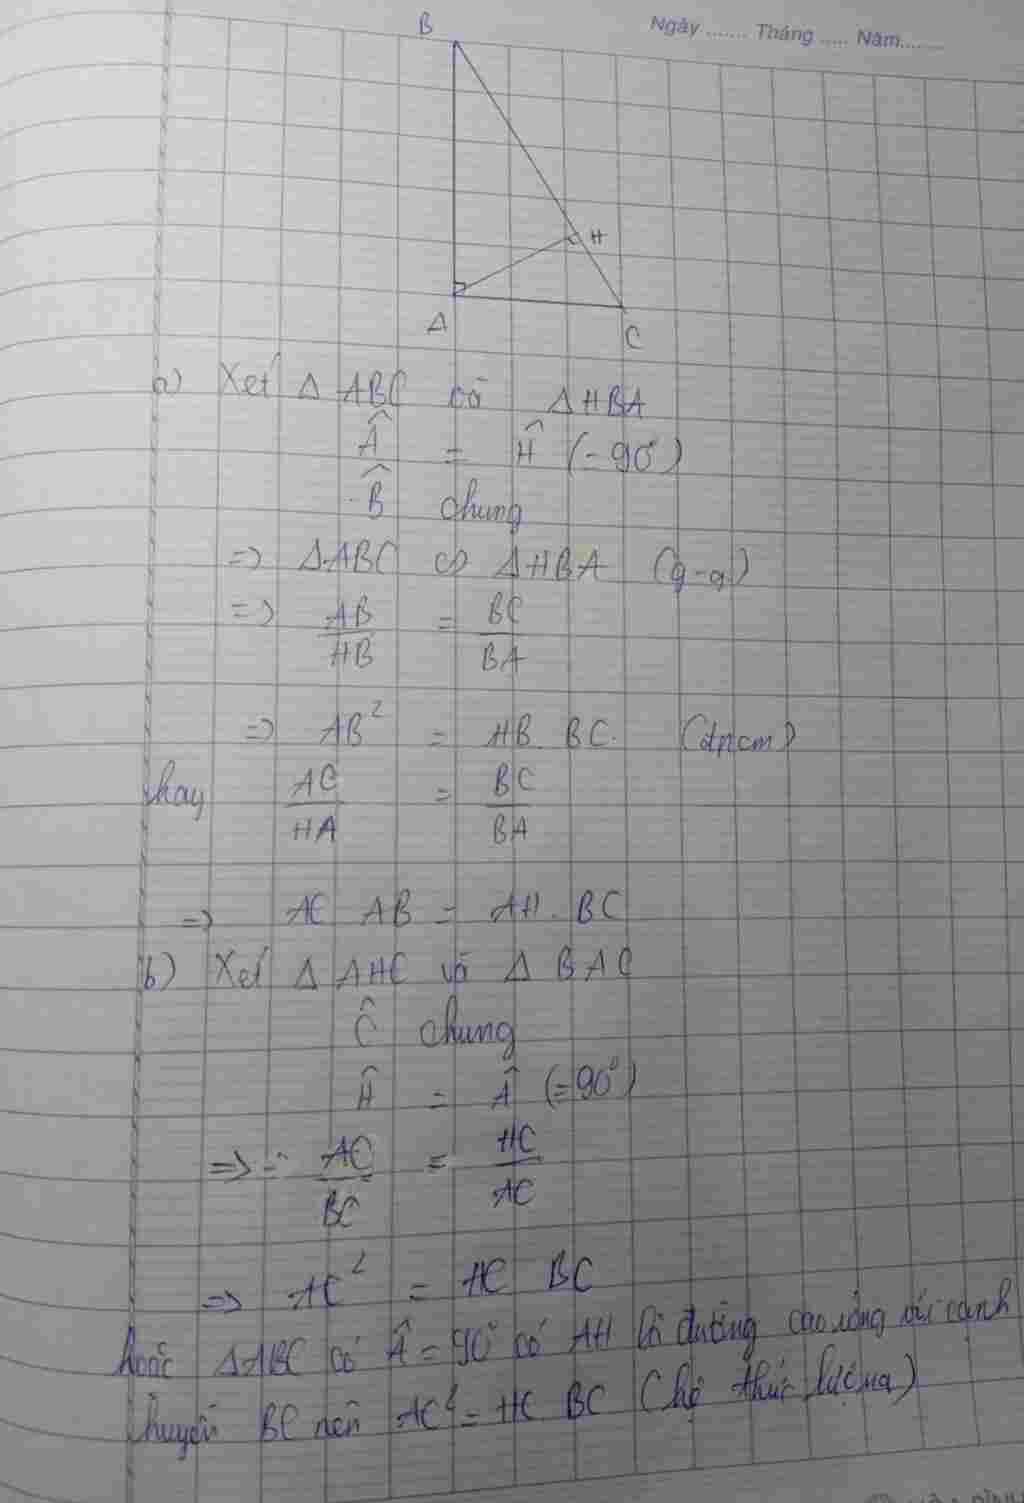 Ngày ....... Tháng ..... Năm.......
B
H
A
C
a) Xét Δ ABC và Δ HBA
Â = Ĥ (= 90°)
B̂ chung
=> Δ ABC ∽ Δ HBA (g-g)
=> AB/HB = BC/BA
=> AB² = HB. BC. (đpcm)
hay AC/HA = BC/BA
=> AC AB = AH. BC
b) Xét Δ AHC và Δ BAC
Ĉ chung
Ĥ = Â (= 90°)
=> AC/BC = HC/AC
=> AC² = HC BC
hoặc ΔABC có Â = 90° có AH là đường cao ứng với cạnh
huyền BC nên AC² = HC BC (hệ thức lượng)